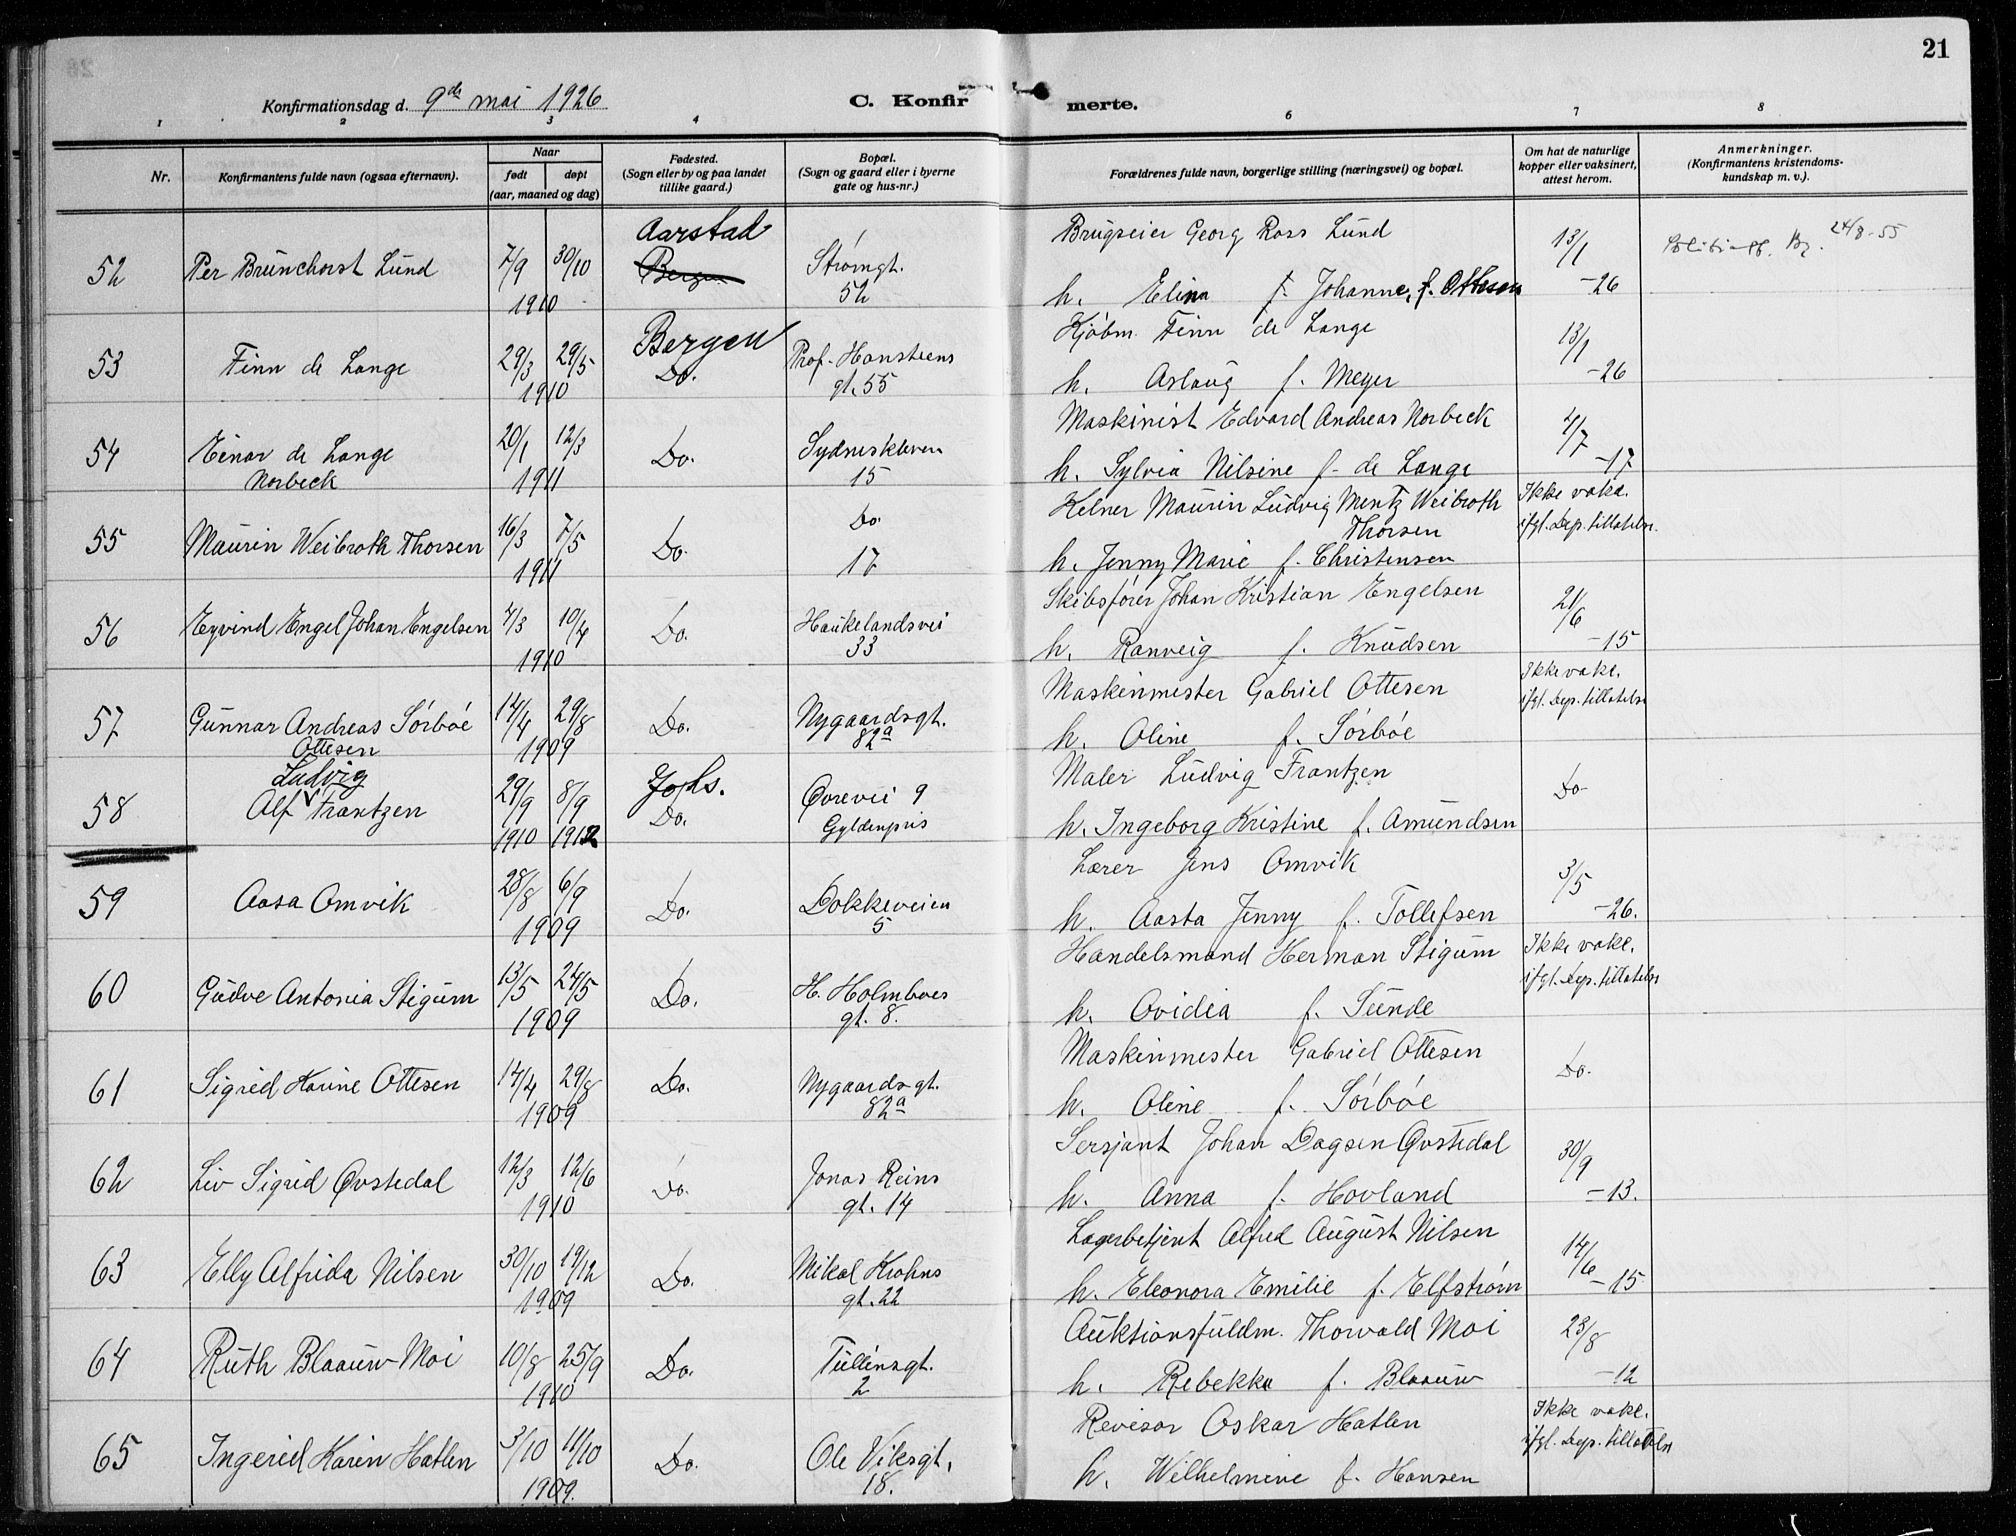 21
Konfirmationsdag d. 9de mai 1926
C. Konfir merte.
1 2 3 4 6 7 8
Nr.
Konfirmantens fulde navn (ogsaa efternavn).
Naar
født døpt
(aar, maaned og dag)
Fødested.
(Sogn eller by og paa landet
tillike gaard.)
Bopæl.
(Sogn og gaard eller i byerne
gate og hus-nr.)
Forældrenes fulde navn, borgerlige stilling (næringsvei) og bopæl.
Om hat de naturlige
kopper eller vaksinert,
attest herom.
Anmerkninger.
(Konfirmantens kristendoms-
kundskap m. v.).
Aarstad Brugseier Georg Ross Lund 13/1 24/8-55
52 Per Brunchorst Lund 7/9 30/10 Bergen Strømgt.
1910 52 h. Elina Johanne, f. Ottesen -26
Bergen Kjøbm. Finn de Lange 13/1
53 Finn de Lange 29/3 29/5 Do. Prof. Hansteens
1910 gt. 55 h. Aslaug f. Meyer -26
Maskinist Edvard Andreas Norbeck 4/7
54 Einar de Lange 20/1 12/3 Do. Sydneskleven
Norbeck 1911 15 h. Sylvia Nilsine f. de Lange -17
Kelner Maurin Ludvig Mentz Weibroth Ikke vakc.
Do. Thorsen ifgl. Dep. tillatelse
55 Maurin Weibroth Thorsen 16/3 7/5 Do.
1911 17 h. Jenny Marie f. Christensen
Skibsfører Johan Kristian Engelsen 21/6
56 Eyvind Engel Johan Engelsen 4/3 10/4 Do. Haukelandsvei
1910 33 h. Ranveig f. Knudsen -15
Maskinmester Gabriel Ottesen Ikke vakc.
ifgl. Dep. tillatelse
57 Gunnar Andreas Sørbøe 14/4 29/8 Do. Nygaardsgt.
Ottesen 1909 82a h. Oline f. Sørbøe
Ludvig Johs. Maler Ludvig Frantzen Do
58 Alf Frantzen 29/9 8/9 Do. Øvrevei 9
1910 1912 Gyldenpris h. Ingeborg Kristine f. Amundsen
Lærer Jens Omvik 3/5
59 Aasa Omvik 28/8 6/9 Do. Dokkeveien
1909 5 h. Aasta Jenny f. Tollefsen -26.
Handelsmand Herman Stigum Ikke vakc.
ifgl. Dep. tillatelse
60 Gudve Antonia Stigum 13/5 24/5 Do. H. Holmboes
1909 gt. 8. h. Ovidia f. Sunde
Maskinmester Gabriel Ottesen Do.
61 Sigrid Karine Ottesen 14/4 29/8 Do. Nygaardsgt.
1909 82a h. Oline f. Sørbøe
Sersjant Johan Dagsen Øvstedal 30/9
62 Liv Sigrid Øvstedal 12/3 12/6 Do. Jonas Reins
1910 gt. 14 h. Anna f. Hovland -13.
Lagerbetjent Alfred August Nilsen 14/6
63 Elly Alfrida Nilsen 30/10 19/12 Do. Mikal Krohns
1909 gt. 22 h. Eleonora Emilie f. Elfstrøm -15
Auktionsfuldm. Thorvald Moi 23/8
64 Ruth Blaauw Moi 10/8 25/9 Do. Tullinsgt.
1910 2 h. Rebekka f. Blaauw -12
Revisor Oskar Hatlen Ikke vakc.
ifgl. Dep. tillatelse
65 Ingerid Karin Hatlen 3/10 11/10 Do. Ole Viksgt.
1909. 18. h. Wilhelmine f. Hansen